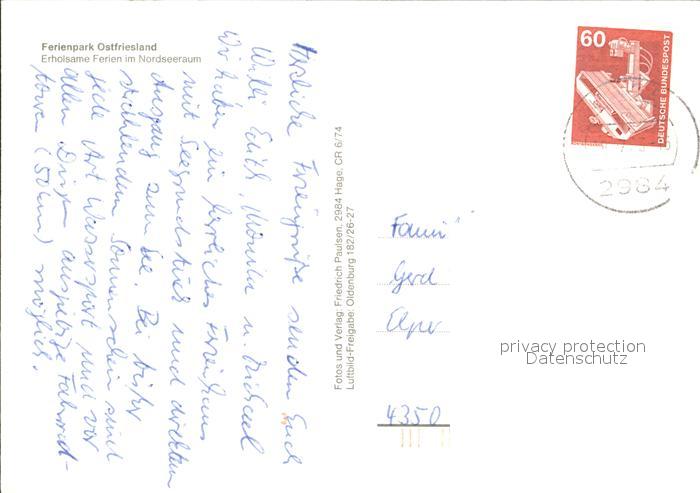 Ferienpark Ostfriesland
Erholsame Ferien im Nordseeraum
Herzliche Feriengrüße senden Euch
Willi Edith, Monika u. Michael
Wir haben ein herrliches Ferienhaus
mit Seegrundstück und direktem
Ausgang zum See. Bei
strahlendem Sonnenschein sind
jede Art Wassersport und vor
allen Dingen ausgiebige Fahrrad-
touren (50 km) möglich.
Fotos und Verlag: Friedrich Paulsen, 2984 Hage, CR 6/74
Luftbild-Freigabe: Oldenburg 182/26-27
60
DEUTSCHE BUNDESPOST
2984
Fami
Gerd
4350
privacy protection
Datenschutz